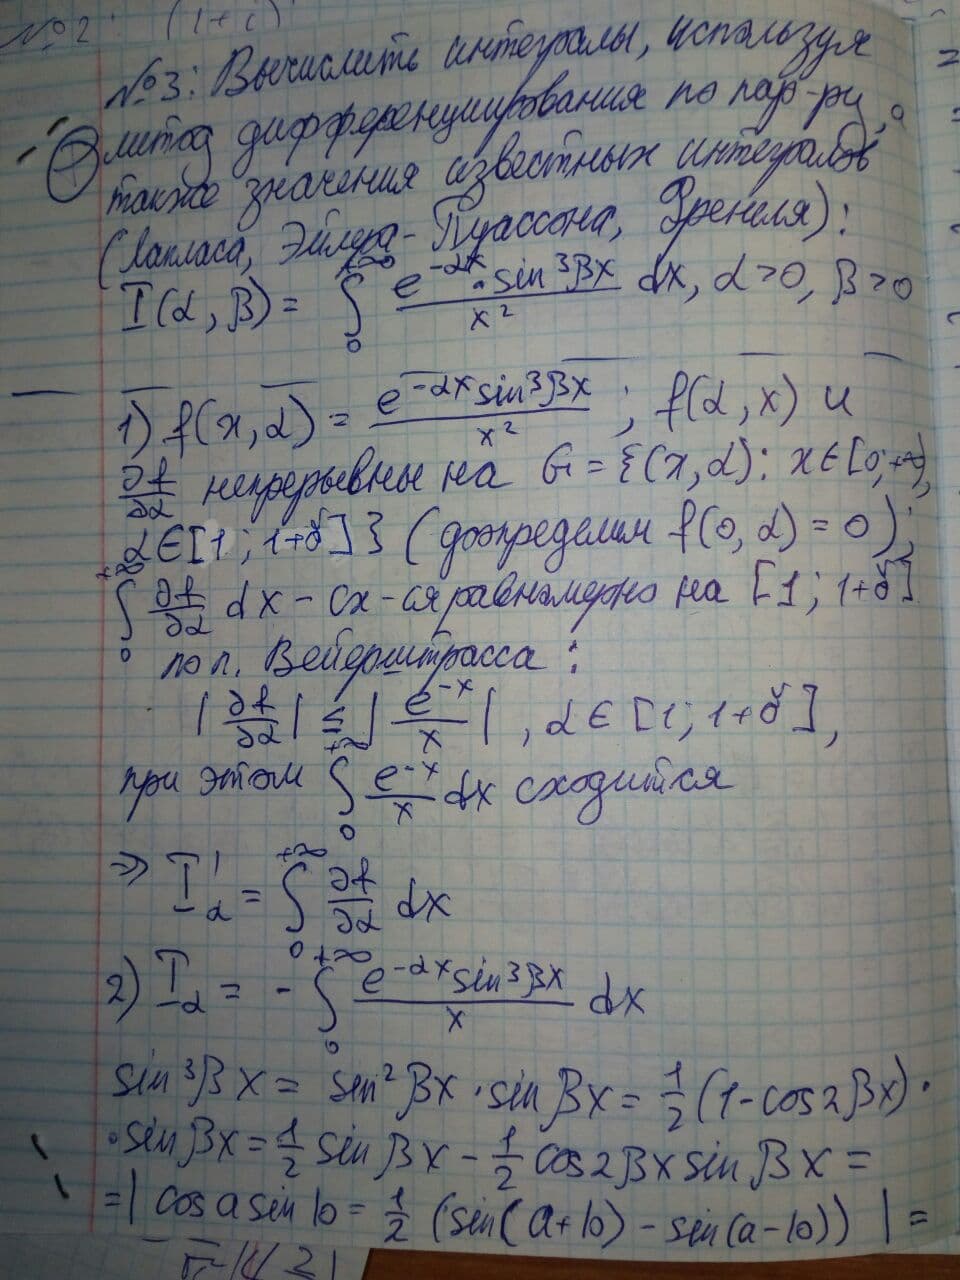 №2: (1+i)
№3: Вычислить интегралы, используя
метод дифференцирования по пар-ру, а
также значения известных интегралов
(Лапласа, Эйлера-Пуассона, Френеля):
I(α, β) = ∫₀^{+∞} e^{-αx}·sin³βx / x² dx, α>0, β>0
1) f(x,α) = e^{-αx}sin³βx / x² ; f(α,x) и
∂f/∂α непрерывны на G = {(x,α): x∈[0;+∞),
α∈[1; 1+δ]} (доопределим f(0,α) = 0);
∫₀^{+∞} ∂f/∂α dx – сх-ся равномерно на [1; 1+δ]
по п. Вейерштрасса:
|∂f/∂α| ≤ |e^{-x}/x|, α∈[1; 1+δ],
при этом ∫₀^{+∞} e^{-x}/x dx сходится
⇒ I'_α = ∫₀^{+∞} ∂f/∂α dx
2) I_α = - ∫₀^{+∞} e^{-αx}sin³βx / x dx
sin³βx = sin²βx·sinβx = 1/2(1-cos2βx)·
·sinβx = 1/2 sinβx - 1/2 cos2βx sinβx =
=| cos a sin b = 1/2 (sin(a+b) - sin(a-b)) | =